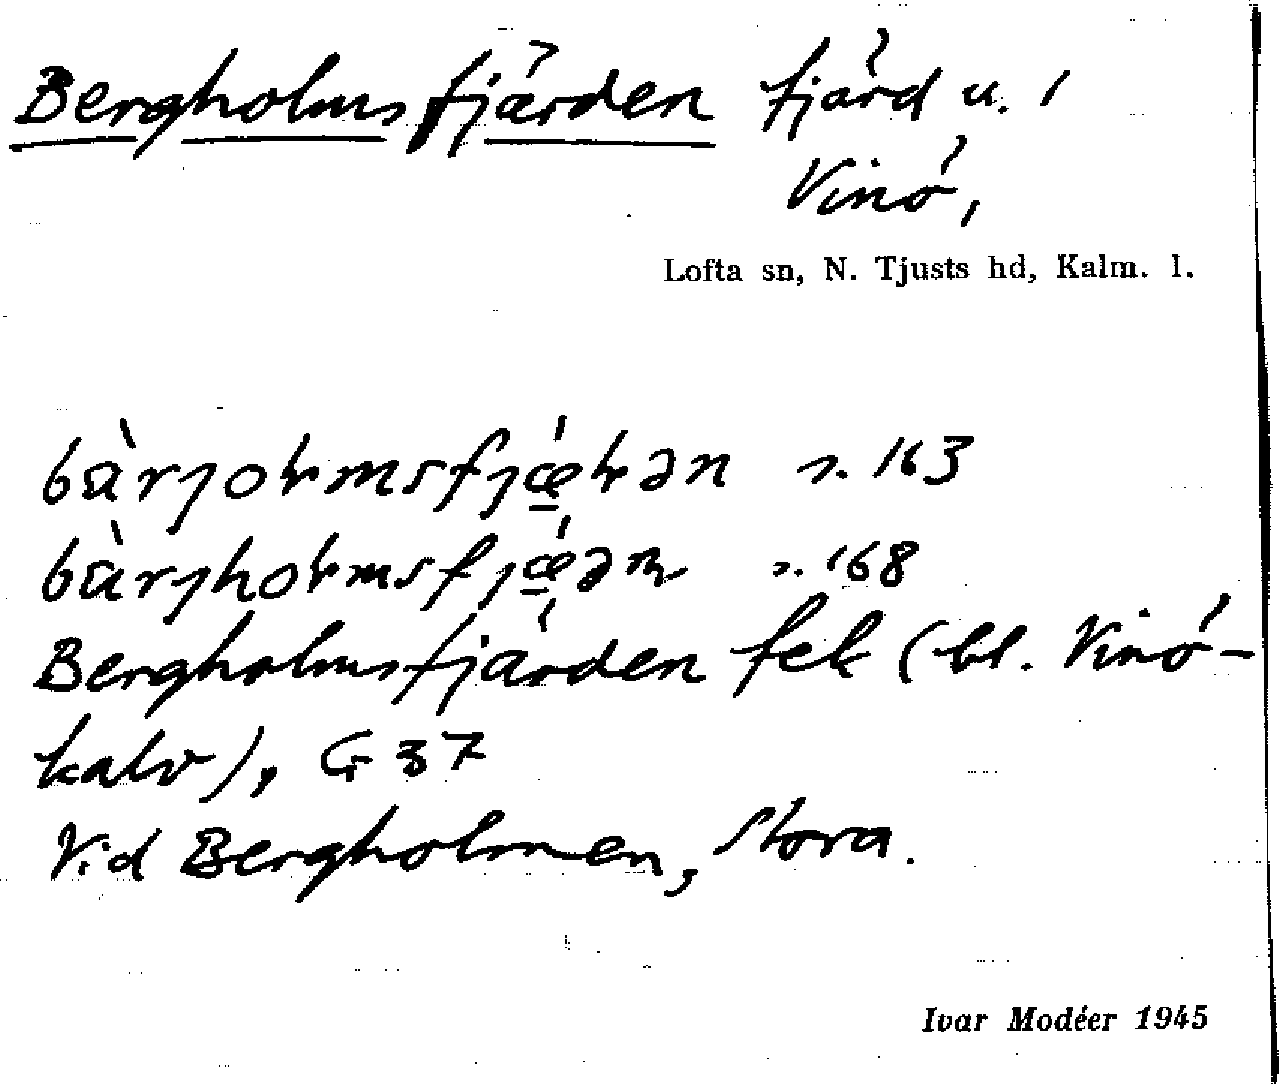 Bergholmsfjärden fjärd u. 1
Vinö,
Lofta sn, N. Tjusts hd, Kalm. l.
s. 163
s. 168
Bergholmsfjärden fek (bl. Vinö-
kalv), G 37
Vid Bergholmen, Stora.
Ivar Modéer 1945